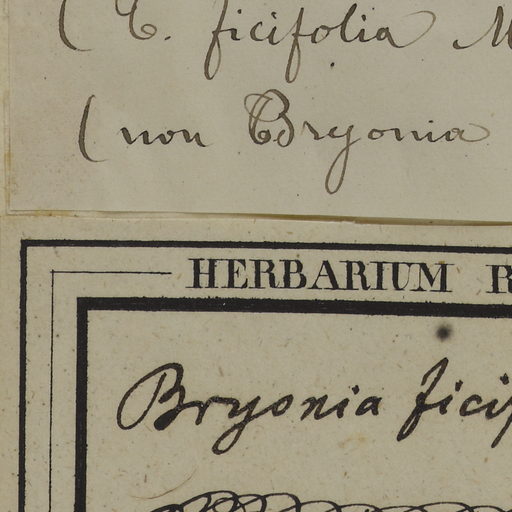 ( C. ficifolia M
( non Bryonia
HERBARIUM R
Bryonia ficif